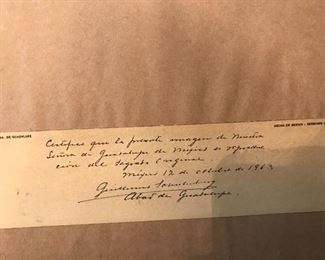 DE GUADALUPE
HECHO EN MEXICO
Certifico que la presente imagen de Nuestra
Señora de Guadalupe de México es reproduc
ción del Sagrado Original
México 12 de octubre de 1963
Guillermo
Abad de Guadalupe.